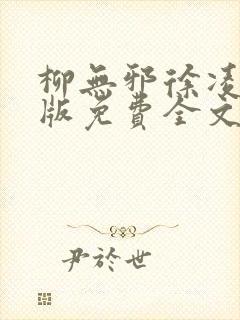 柳無邪徐凌
版免費全文
尹於世